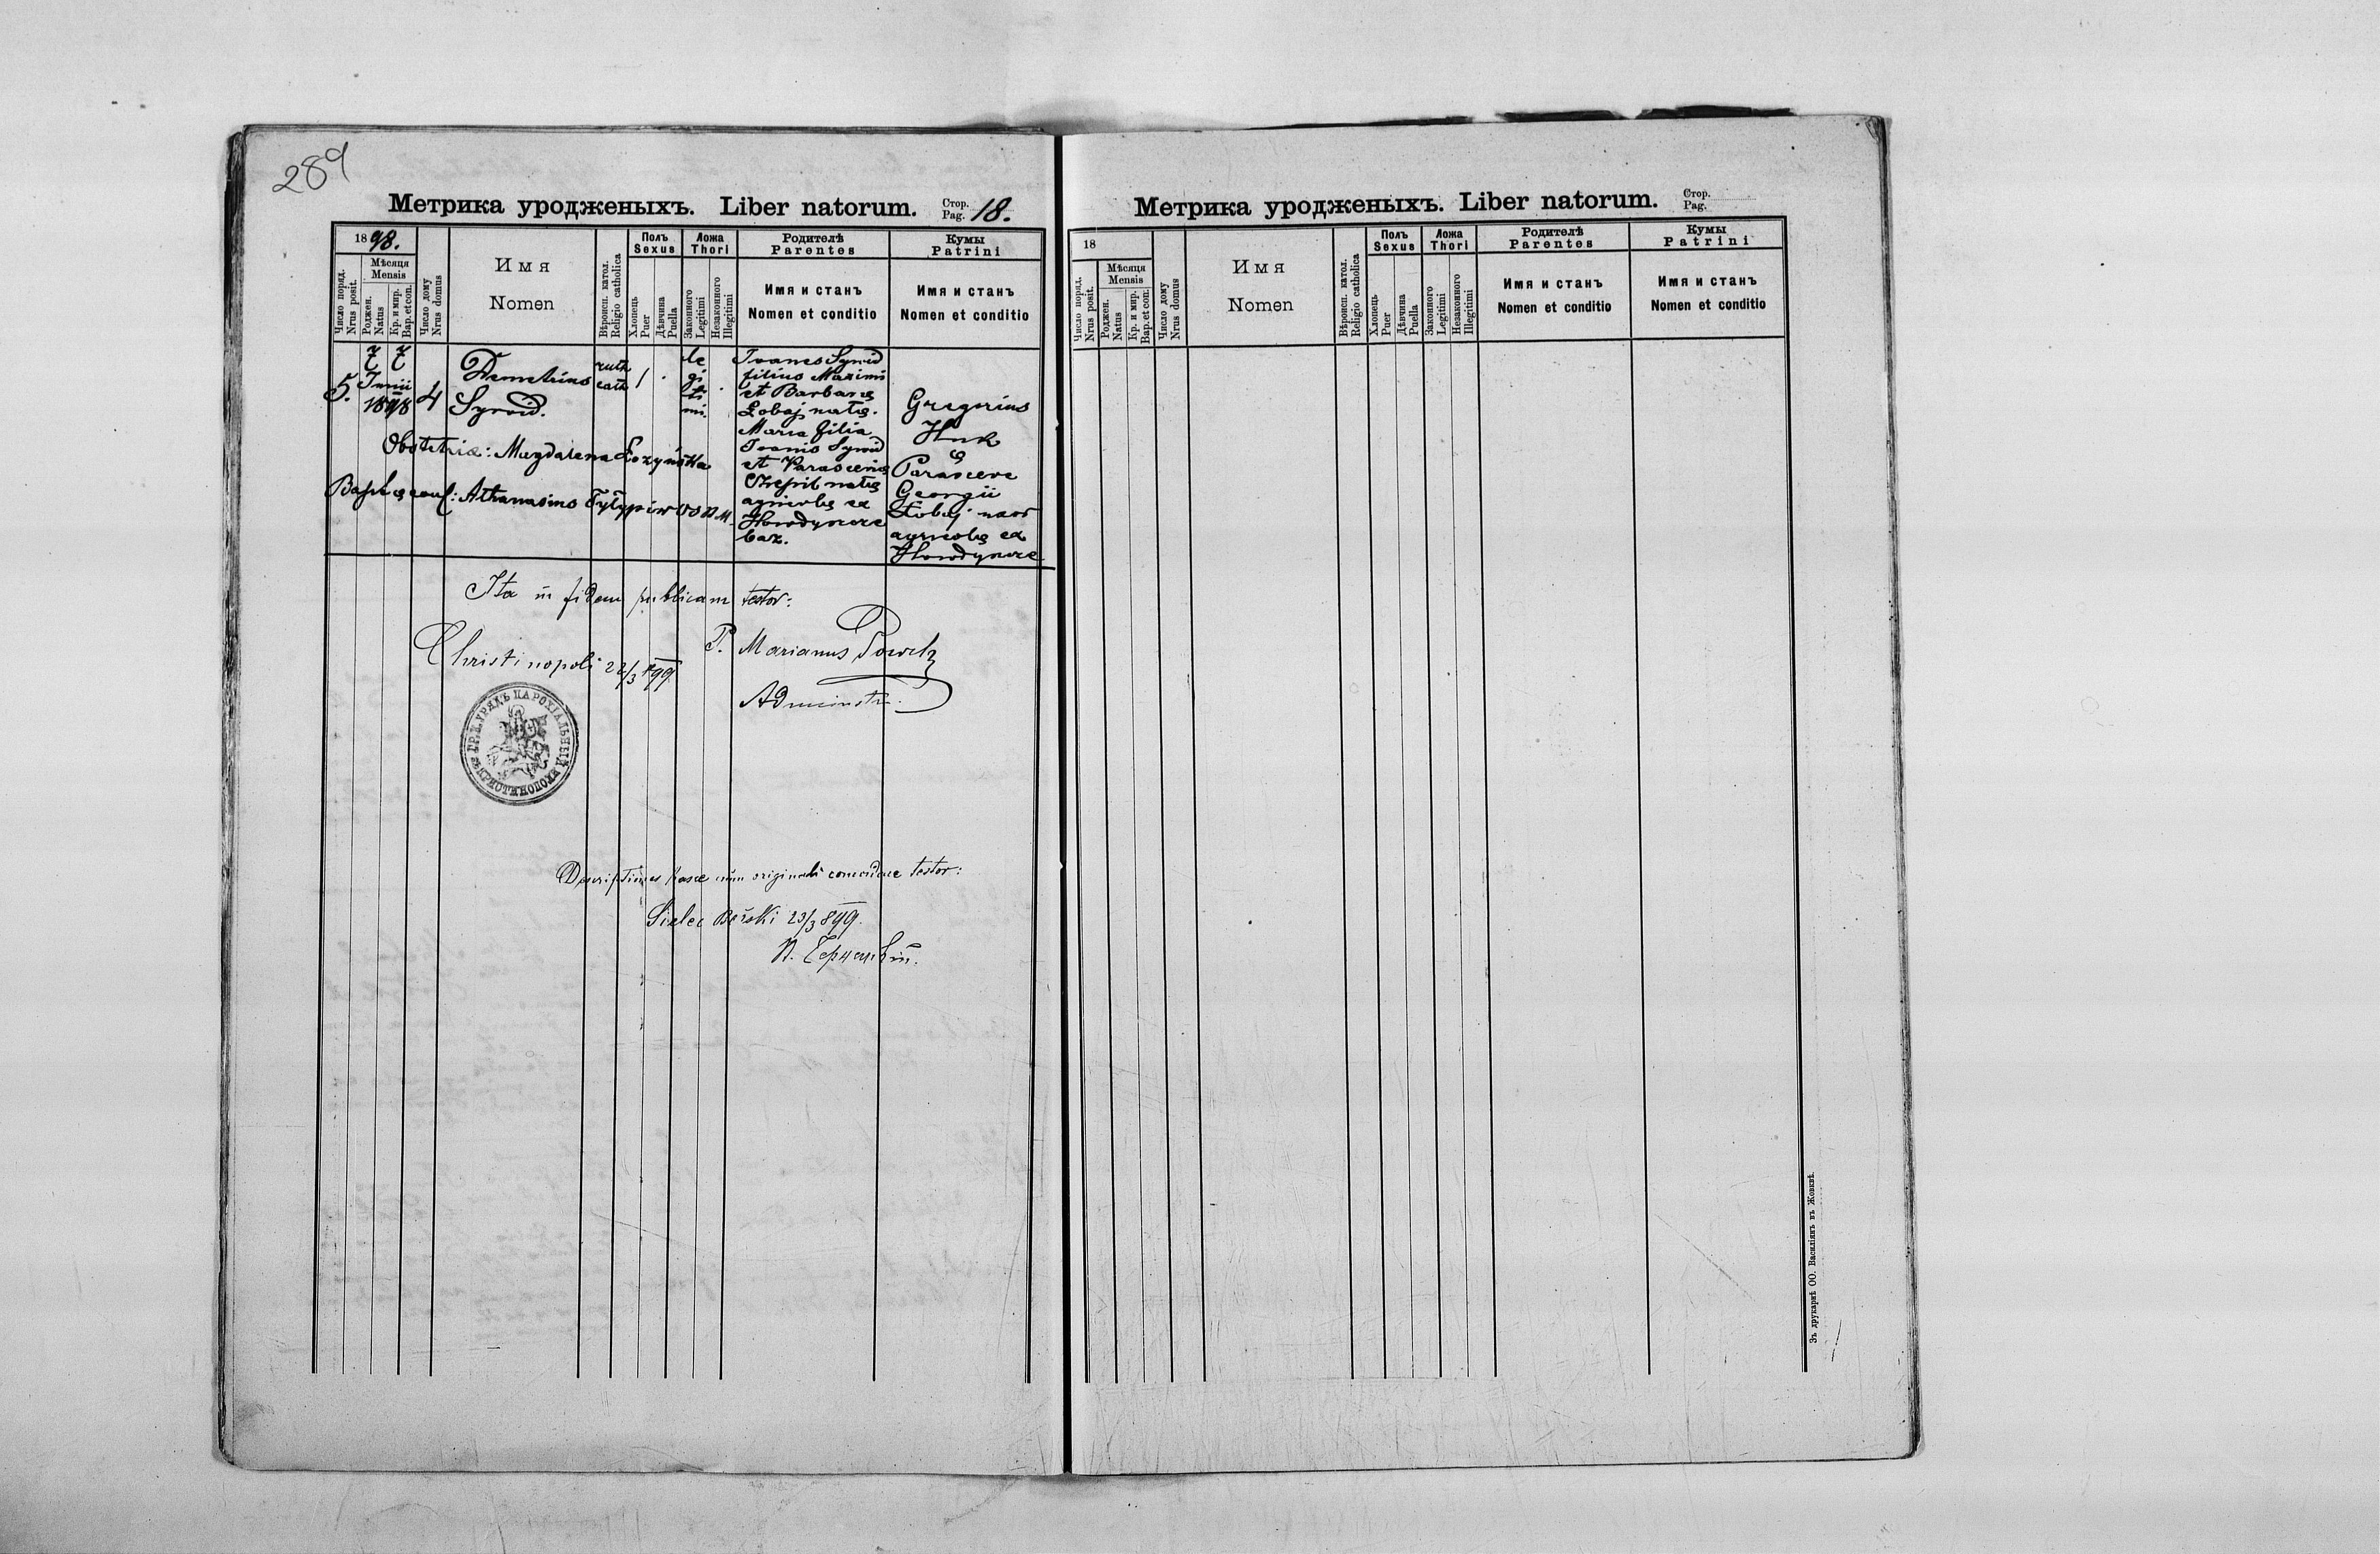 289
Метрика уродженыхъ. Liber natorum. Стор. Pag. 18.
1898.
Число поряд. Nrus posit.
Мѣсяця Mensis
Роджен. Natus
Кр. и мир. Bap. et con.
Число дому Nrus domus
Имя
Nomen
Вѣроисп. катол. Religio catholica
Полъ Sexus
Хлопець Puer
Дѣвчина Puella
Ложа Thori
Законного Legitimi
Незаконного Illegitimi
Родителѣ
Parentes
Имя и станъ
Nomen et conditio
Кумы
Patrini
Имя и станъ
Nomen et conditio
5.
7 7
Junii
1898
4
Demetrius
Syroid.
ruth
cath
1
le
gi
ti
mi.
Ivanes Syroid
filius Maximi
et Barbarę
Łobaj natę.
Maria filia
Ivanis Syroid
et Parascevię
natę
agricolę ex
Horodyszcze
baz.
Gregorius
Huk
&
Parasceve
Georgii
Łobaj uxor
agricolę ex
Horodyszcze
Obstetrix: Magdalena Łozyńska
Bapt. et conf: Athanasius OSBM.
Ita in fidem publicam testor:
Christinopoli 22/3 899
P. Marianus
Administr.
ГР. К. УРЯДЪ ПАРОХІАЛЬНЫЙ въ КРИСТИНОПОЛИ
Descriptiones hasce cum originali concordare testor:
Sielec Bełski 23/3 899.
Метрика уродженыхъ. Liber natorum. Стор. Pag.
18
Число поряд. Nrus posit.
Мѣсяця Mensis
Роджен. Natus
Кр. и мир. Bap. et con.
Число дому Nrus domus
Имя
Nomen
Вѣроисп. катол. Religio catholica
Полъ Sexus
Хлопець Puer
Дѣвчина Puella
Ложа Thori
Законного Legitimi
Незаконного Illegitimi
Родителѣ
Parentes
Имя и станъ
Nomen et conditio
Кумы
Patrini
Имя и станъ
Nomen et conditio
Зъ друкарнѣ ОО. Василіянъ въ Жовквѣ.